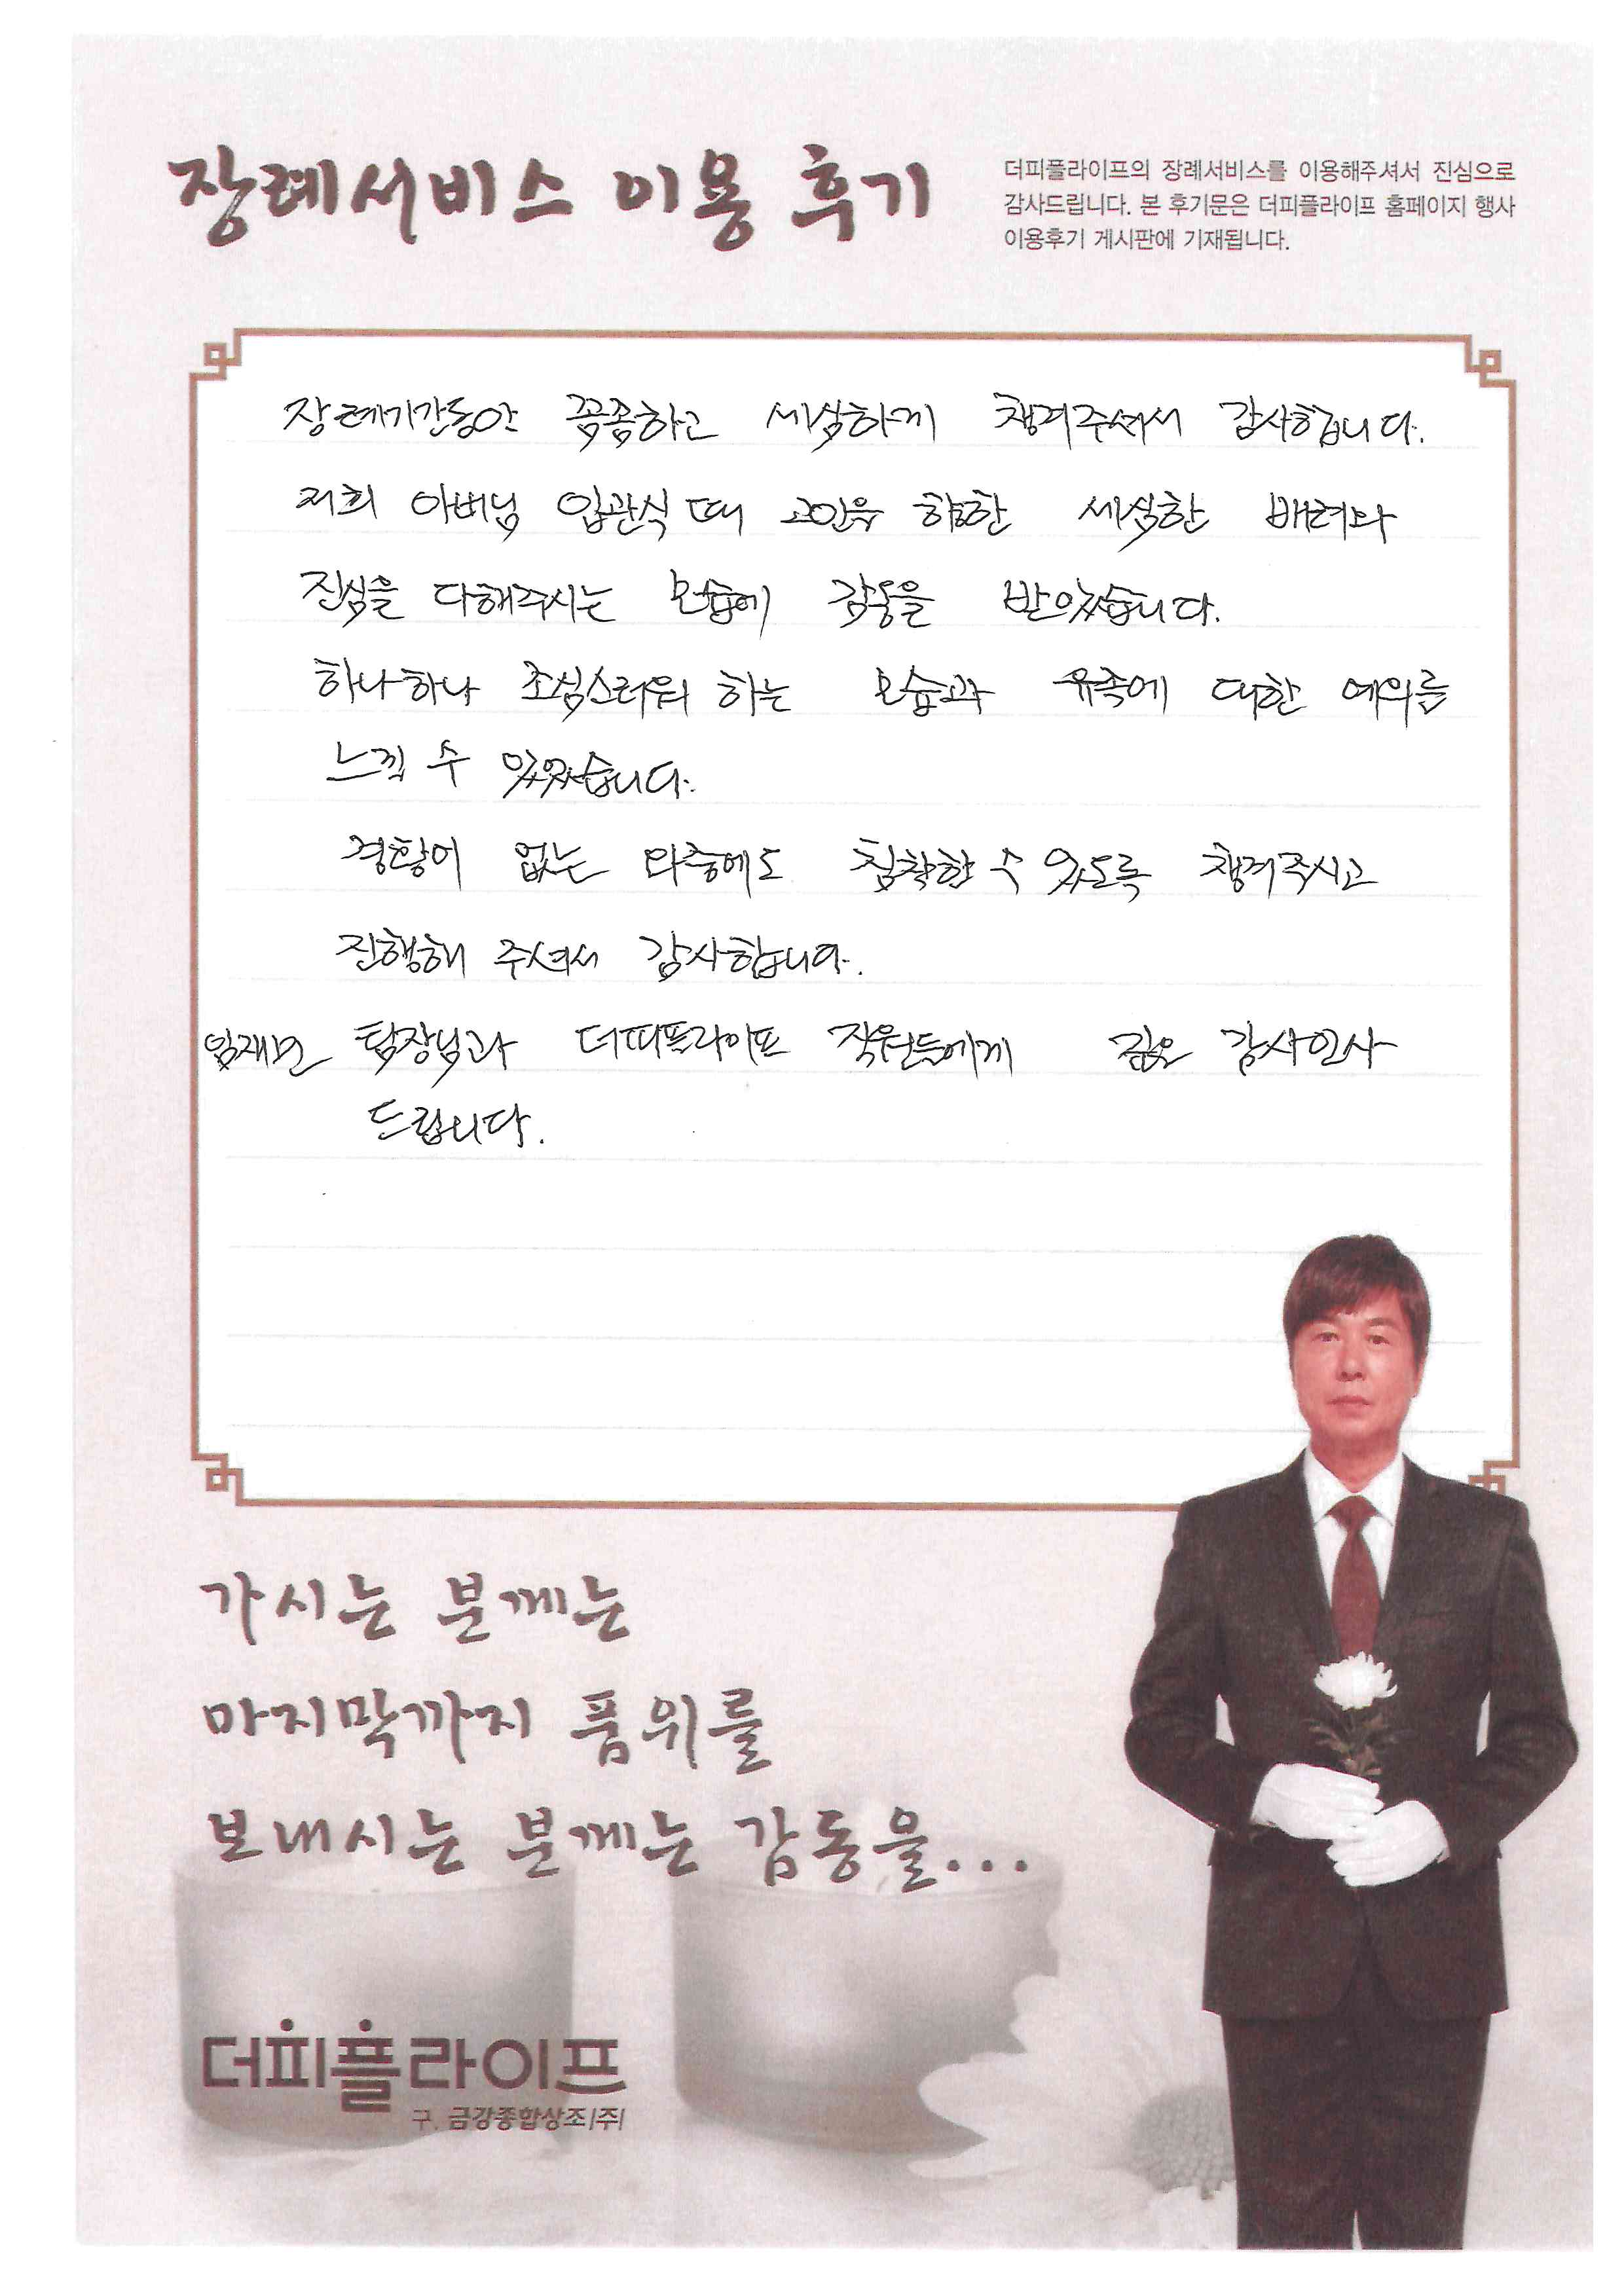 장례서비스 이용 후기
더피플라이프의 장례서비스를 이용해주셔서 진심으로
감사드립니다. 본 후기문은 더피플라이프 홈페이지 행사
이용후기 게시판에 기재됩니다.
장례기간동안 꼼꼼하고 세심하게 챙겨주셔서 감사합니다.
저희 아버님 입관식 때 고인을 향한 세심한 배려와
진심을 다해주시는 모습에 감동을 받았습니다.
하나하나 조심스러워 하는 모습과 유족에 대한 예의를
느낄 수 있었습니다.
경황이 없는 와중에도 침착할 수 있도록 챙겨주시고
진행해 주셔서 감사합니다.
팀장님과 더피플라이프 직원들에게 깊은 감사인사
드립니다.
가시는 분께는
마지막까지 품위를
보내시는 분께는 감동을...
더피플라이프
구. 금강종합상조(주)